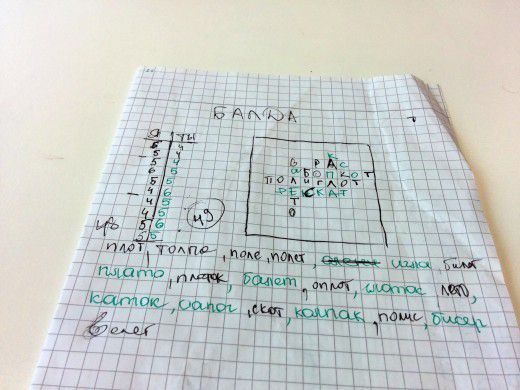 БАЛДА
Я ТЫ
5 4
5 4
5 4
5 5
6 5
5 5
4 6
4 5
4 5
5 6
5 5
49
Б Р А С
А Б О П К О Т
П О Л И Г Л О Т
Р Е С К А Т
Т Т
О
плот, толпа, поле, полет, игла, билет
плато, платок, балет, оплот, глоток, лето,
каток, сапог, скот, колпак, полис, бисер